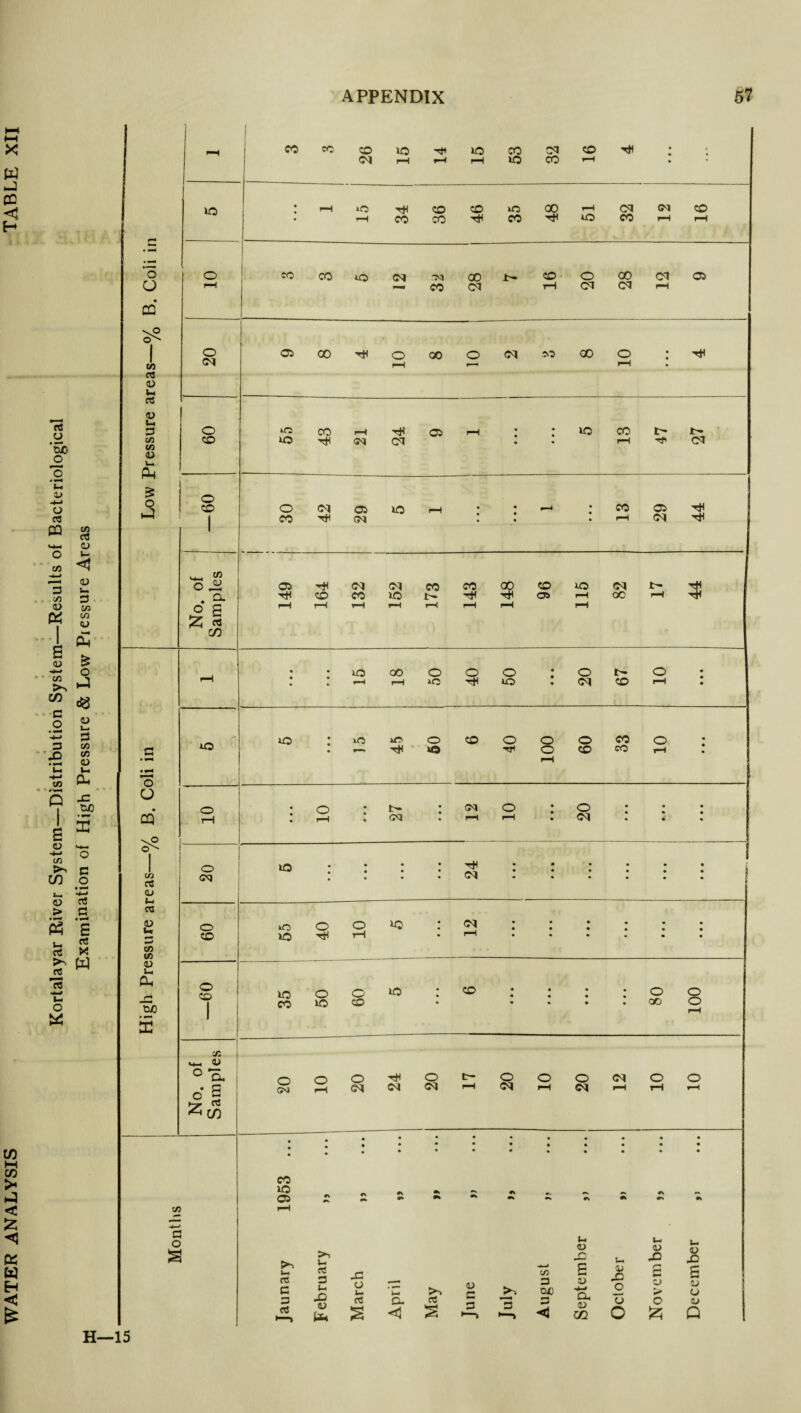 APPENDIX 57
WATER ANALYSIS TABLE XII
Kortalayar River System—Distribution System—Results of Bacteriological
Examination of High Pressure & Low Pressure Areas
Months High Pressure areas—% B. Coli in Low Pressure areas—% B. Coli in
No. of Samples —60 60 20 10 5 1 No. of Samples —60 60 20 10 5 1
Jaunary 1953 ... 20 35 55 5 ... 5 ... 149 30 55 9 3 ... 3
February „ ... 10 50 40 ... 10 ... ... 164 42 43 8 3 1 3
March „ ... 20 60 10 ... ... 15 15 132 29 21 4 5 15 26
April „ ... 24 5 5 ... 27 45 18 152 5 24 10 12 34 15
May „ ... 20 ... ... ... ... 50 50 173 1 9 8 32 36 14
June „ ... 17 6 12 24 12 6 40 143 ... 1 10 28 46 15
July „ ... 20 ... ... ... 10 40 50 148 ... ... 2 7 35 53
August „ ... 10 ... ... ... ... 100 ... 96 1 ... 3 16 48 32
September „ ... 20 ... ... ... 20 60 20 115 ... 5 8 20 51 16
October „ ... 12 ... ... ... ... 33 67 82 13 13 10 28 32 4
November „ ... 10 80 ... ... ... 10 10 17 29 47 ... 12 12 ...
December „ ... 10 100 ... ... ... ... ... 44 44 27 4 9 16 ...
H—15